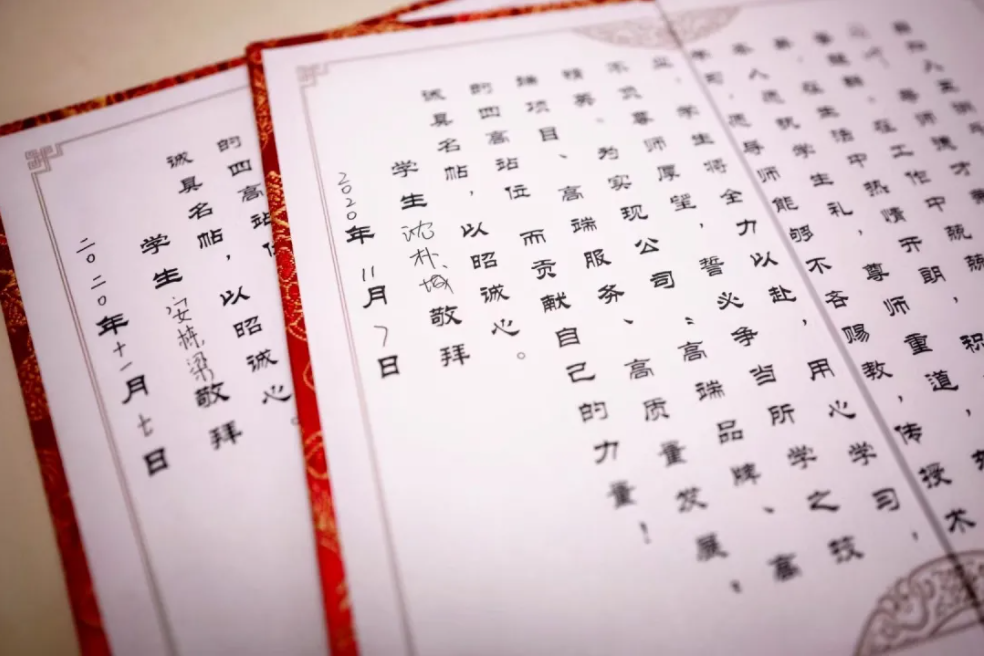 导师德才兼
在工作中兢兢
在生活中热情开朗，积
本人愿执学生礼，尊师重道，
导师能够不吝赐教，传授术
业，学生将全力以赴，用心学习，
不负尊师厚望，誓必争当所学之技
精英。为实现公司“高端品牌、高
端项目、高端服务、高质量发展”
的四高站位而贡献自己的力量！
诚具名帖，以昭诚心。
学生沈朴城敬拜
2020年11月7日
的四高站
诚具名帖，以昭诚心。
学生安栋梁敬拜
二〇二〇年十一月七日